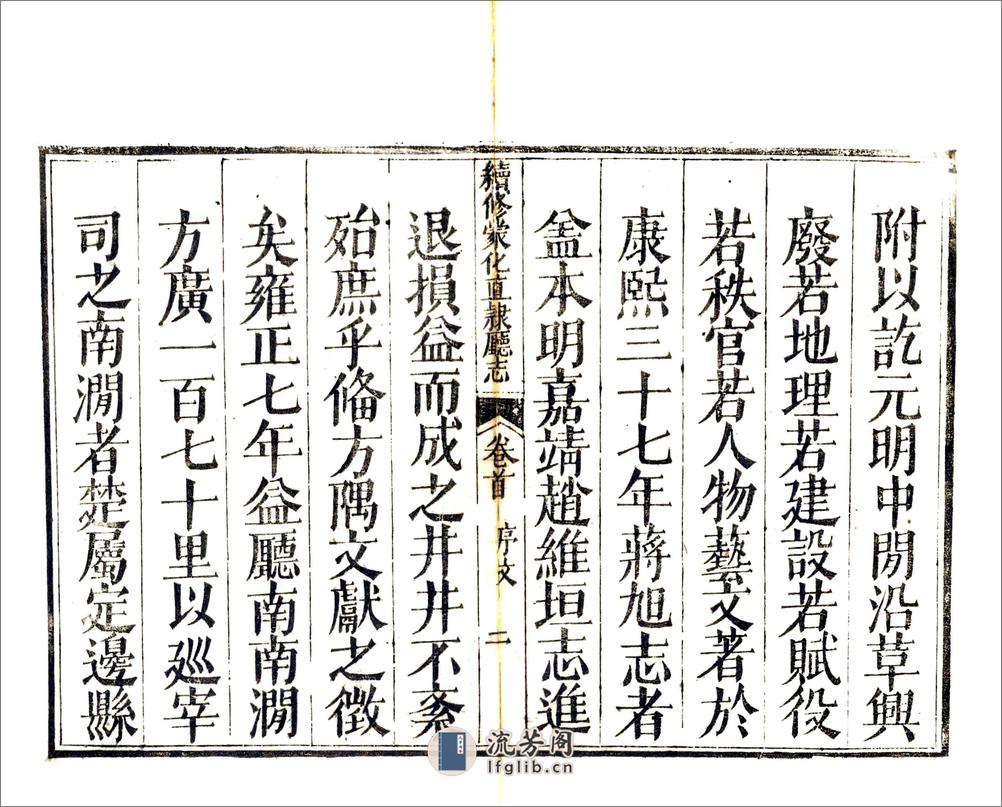 附以訖元明中閒沿草興
廢若地理若建設若賦役
若秩官若人物藝文著於
康熙三十七年蔣旭志者
葢本明嘉靖趙維垣志進
續修蒙化直隸廳志
卷首
序文
二
退損益而成之井井不紊
殆庶乎俻方隅文獻之徵
矣雍正七年益廳南南澗
方廣一百七十里以廵宰
司之南澗者楚屬定邊縣
流芳阁
lfglib.cn